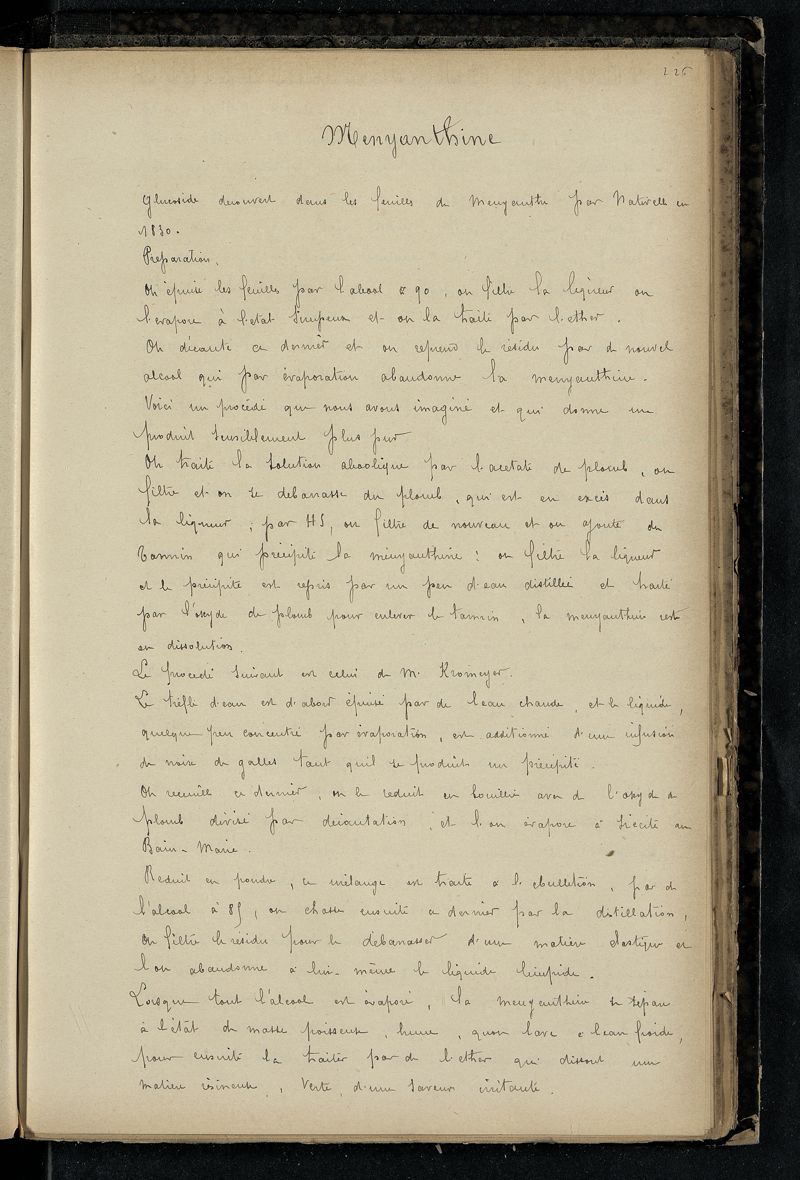 226
Menyanthine
Glucoside decouvert dans les feuilles de Menyanthe par Nativelle en
1830.
Preparation.
On épuise les feuilles par l'alcool à 90, on filtre la liqueur on
l'evapore à l'etat Sirupeux et on la traite par l'ether.
On décante ce dernier et on reprend le résidu par de nouvel
alcool qui par évaporation abandonne la menyanthine.
Voici un procédé que nous avons imaginé et qui donne un
produit sensiblement plus pur
On traite la Solution alcoolique par l'acetate de plomb, on
filtre et on se debarrasse du plomb, qui est en excès dans
la liqueur, par HS, on filtre de nouveau et on ajoute du
Tannin qui précipite la ményanthine: on filtre la liqueur
et le précipité est repris par un peu d'eau distillée et traité
par l'oxyde de plomb pour enlever le tannin, la menyanthine est
en dissolution.
Le procédé suivant est celui de M. Kromeyer.
Le trèfle d'eau est d'abord épuisé par de l'eau chaude, et le liquide,
quelque peu concentré par évaporation, est additionné d'une infusion
de noix de galles tant qu'il se produit un précipité.
On recueille ce dernier, on le reduit en bouillie avec de l'oxyde de
plomb divisé par décantation, et l'on évapore à siccité au
Bain-Marie.
Reduit en poudre, ce mélange est traité à l'ebullition, par de
l'alcool à 85, on chasse ensuite ce dernier par la distillation,
on filtre le résidu pour le débarrasser d'une matière elastique et
l'on abandonne à lui-même le liquide limpide.
Lorsque tout l'alcool est évaporé, la menyanthine se sépare
à l'état de masse poisseuse, brune, qu'on lave à l'eau froide,
pour ensuite la traiter par de l'ether qui dissout une
matière résineuse, verte, d'une saveur irritante.